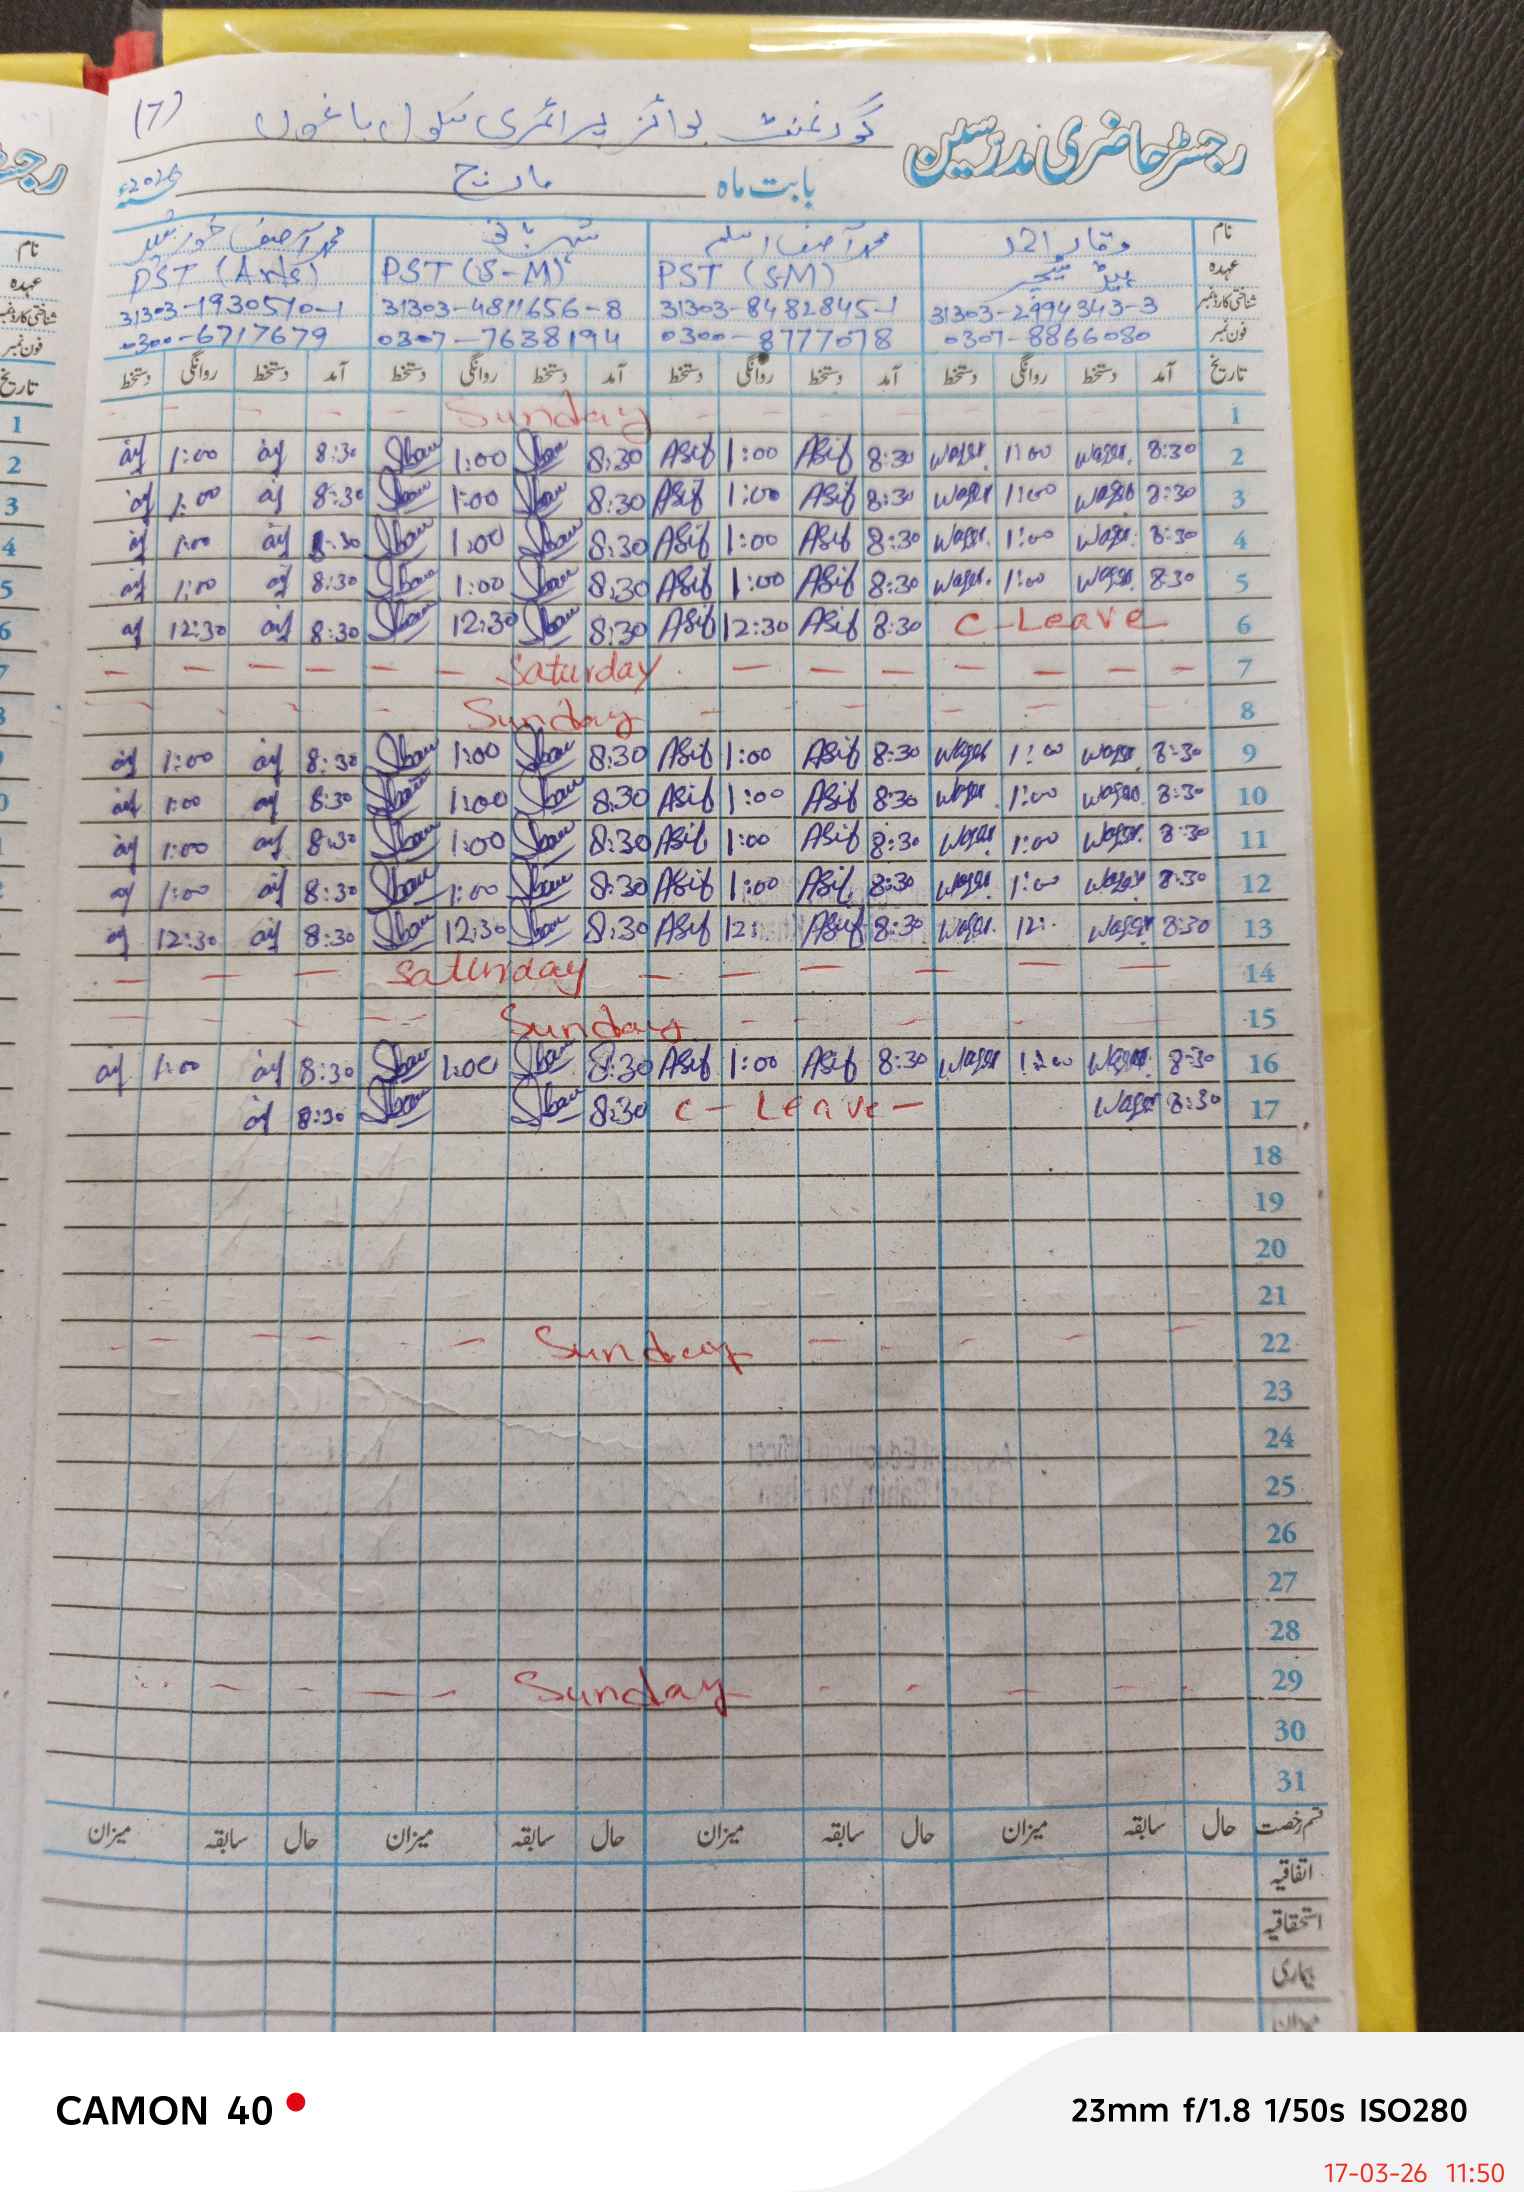 رجسٹر حاضری مدرسین گورنمنٹ بوائز پرائمری سکول باغوں (7)
بابت ماہ مارچ 2026ء
نام وقار احمد محمد آصف اسلم شہر بانی محمد آصف خورشید
عہدہ ہیڈ ٹیچر PST (SM) PST (S-M) PST (Arts)
شناختی کارڈ نمبر 31303-2994343-3 31303-8482845-1 31303-4811656-8 31303-1930510-1
فون نمبر 0307-8866080 0300-8777078 0307-7638194 0300-6717679
تاریخ آمد دستخط روانگی دستخط آمد دستخط روانگی دستخط آمد دستخط روانگی دستخط آمد دستخط روانگی دستخط
1 Sunday
2 8:30 Waqar 1:00 Waqar 8:30 ASif 1:00 ASif 8:30 1:00 8:30 1:00
3 8:30 Waqar 1:00 Waqar 8:30 ASif 1:00 ASif 8:30 1:00 8:30 1:00
4 8:30 Waqar 1:00 Waqar 8:30 ASif 1:00 ASif 8:30 1:00 8:30 1:00
5 8:30 Waqar 1:00 Waqar 8:30 ASif 1:00 ASif 8:30 1:00 8:30 1:00
6 C-Leave 8:30 ASif 12:30 ASif 8:30 12:30 8:30 12:30
7 Saturday
8 Sunday
9 8:30 Waqar 1:00 Waqar 8:30 ASif 1:00 ASif 8:30 1:00 8:30 1:00
10 8:30 Waqar 1:00 Waqar 8:30 ASif 1:00 ASif 8:30 1:00 8:30 1:00
11 8:30 Waqar 1:00 Waqar 8:30 ASif 1:00 ASif 8:30 1:00 8:30 1:00
12 8:30 Waqar 1:00 Waqar 8:30 ASif 1:00 ASif 8:30 1:00 8:30 1:00
13 8:30 Waqar 12: Waqar 8:30 ASif 12: ASif 8:30 12:30 8:30 12:30
14 Saturday
15 Sunday
16 8:30 Waqar 1:00 Waqar 8:30 ASif 1:00 ASif 8:30 1:00 8:30 1:00
17 8:30 Waqar C-Leave- 8:30 8:30
18
19
20
21
22 Sunday
23
24
25
26
27
28
29 Sunday
30
31
قسم رخصت حال سابقہ میزان حال سابقہ میزان حال سابقہ میزان حال سابقہ میزان
اتفاقیہ
استحقاقیہ
بیماری
میزان
CAMON 40 23mm f/1.8 1/50s ISO280
17-03-26 11:50